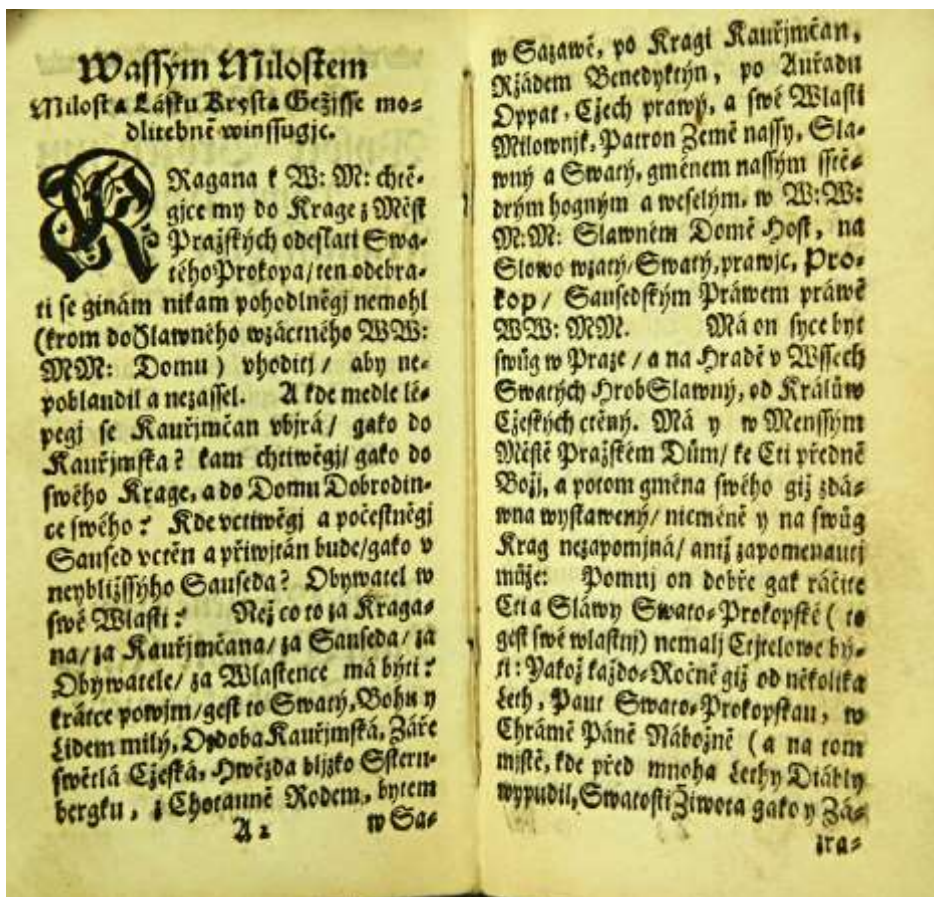 Wassým Milostem
Milost a Lásku Krysta Gežisse mo=
dlitebně winssugjc.
KRagana k W: M: chtě=
gjce my do Krage z Měst
Pražských odeslati Swa=
tého Prokopa/ ten odebra=
ti se ginám nikam pohodlněgj nemohl
(krom do Slawného wzáctného WW:
MM: Domu) vhoditj/ aby ne=
poblaudil a nezassel. A kde medle lé=
pegj se Kauřjmčan vbjrá/ gako do
Kauřjmska? kam chtiwěgj/ gako do
swého Krage, a do Domu Dobrodin=
ce swého? Kde vctiwěgj a počestněgj
Saused vctěn a přiwjtán bude/ gako v
neybližssýho Sauseda? Obywatel w
swé Wlasti? Než co to za Kraga=
na/ za Kauřjmčana/ za Sauseda/ za
Obywatele/ za Wlastence má býti?
krátce powjm/ gest to Swatý, Bohu y
Lidem milý, Ozdoba Kauřjmská, Záře
swětlá Cžeská, Hwězda bljzko Sstern=
bergku, z Chotauně Rodem, bytem
A 2 w Sa=
w Sazawě, po Kragi Kauřjmčan,
Rjádem Benedyktýn, po Auřadu
Oppat, Cžech prawý, a swé Wlasti
Milownjk, Patron Země nassý, Sla=
wný a Swatý, gménem nassým sstě=
drým hogným a weselým, w W: W:
M: M: Slawném Domě Host, na
Slowo wzatý/ Swatý, prawjc, Pro=
kop/ Sausedským Práwem práwě
WW: MM. Má on syce byt
swůg w Praze/ a na Hradě v Wssech
Swatých Hrob Slawný, od Králůw
Cžeských ctěný. Má y w Menssým
Městě Pražském Dům/ ke Cti předně
Božj, a potom gména swého giž zdá=
wna wystawený/ nicméně y na swůg
Krag nezapomjná/ aniž zapomenautj
může: Pomnj on dobře gak ráčite
Cti a Sláwy Swato=Prokopské (to
gest swé wlastnj) nemalj Ctjtelowe by=
ti: Yakož každo=Ročně giž od několika
Leth, Paut Swato=Prokopskau, w
Chrámě Páně Nábožně (a na tom
mjstě, kde před mnoha Lethy Diábly
wypudil, Swatosti Života gako y Zá=
zra=